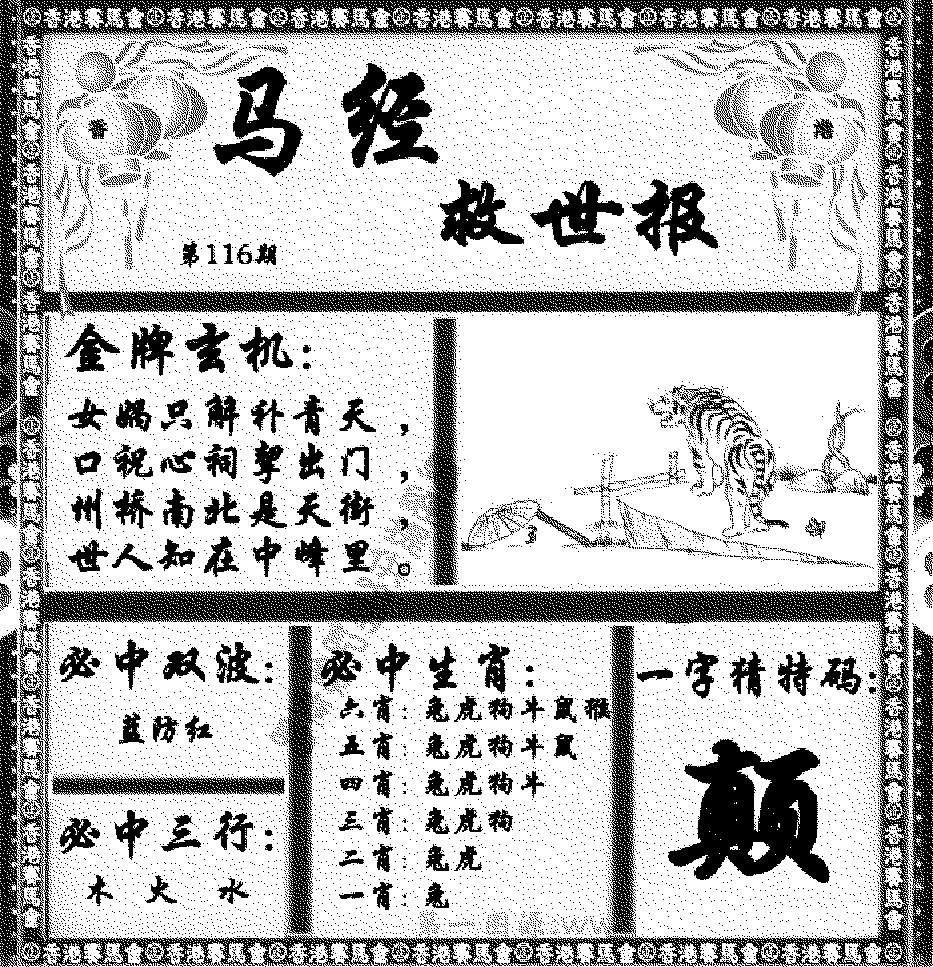 香港賽馬會香港賽馬會香港賽馬會香港賽馬會香港賽馬會香港賽馬會香港賽馬會
香
港
马经
救世报
第116期
金牌玄机：
女娲只解补青天，
口祝心祠挈出门，
州桥南北是天街，
世人知在中峰里。
必中双波：
蓝防红
必中三行：
木 火 水
必中生肖：
六肖：兔虎狗牛鼠猴
五肖：兔虎狗牛鼠
四肖：兔虎狗牛
三肖：兔虎狗
二肖：兔虎
一肖：兔
一字猜特码：
颠
香港賽馬會香港賽馬會香港賽馬會香港賽馬會香港賽馬會香港賽馬會香港賽馬會